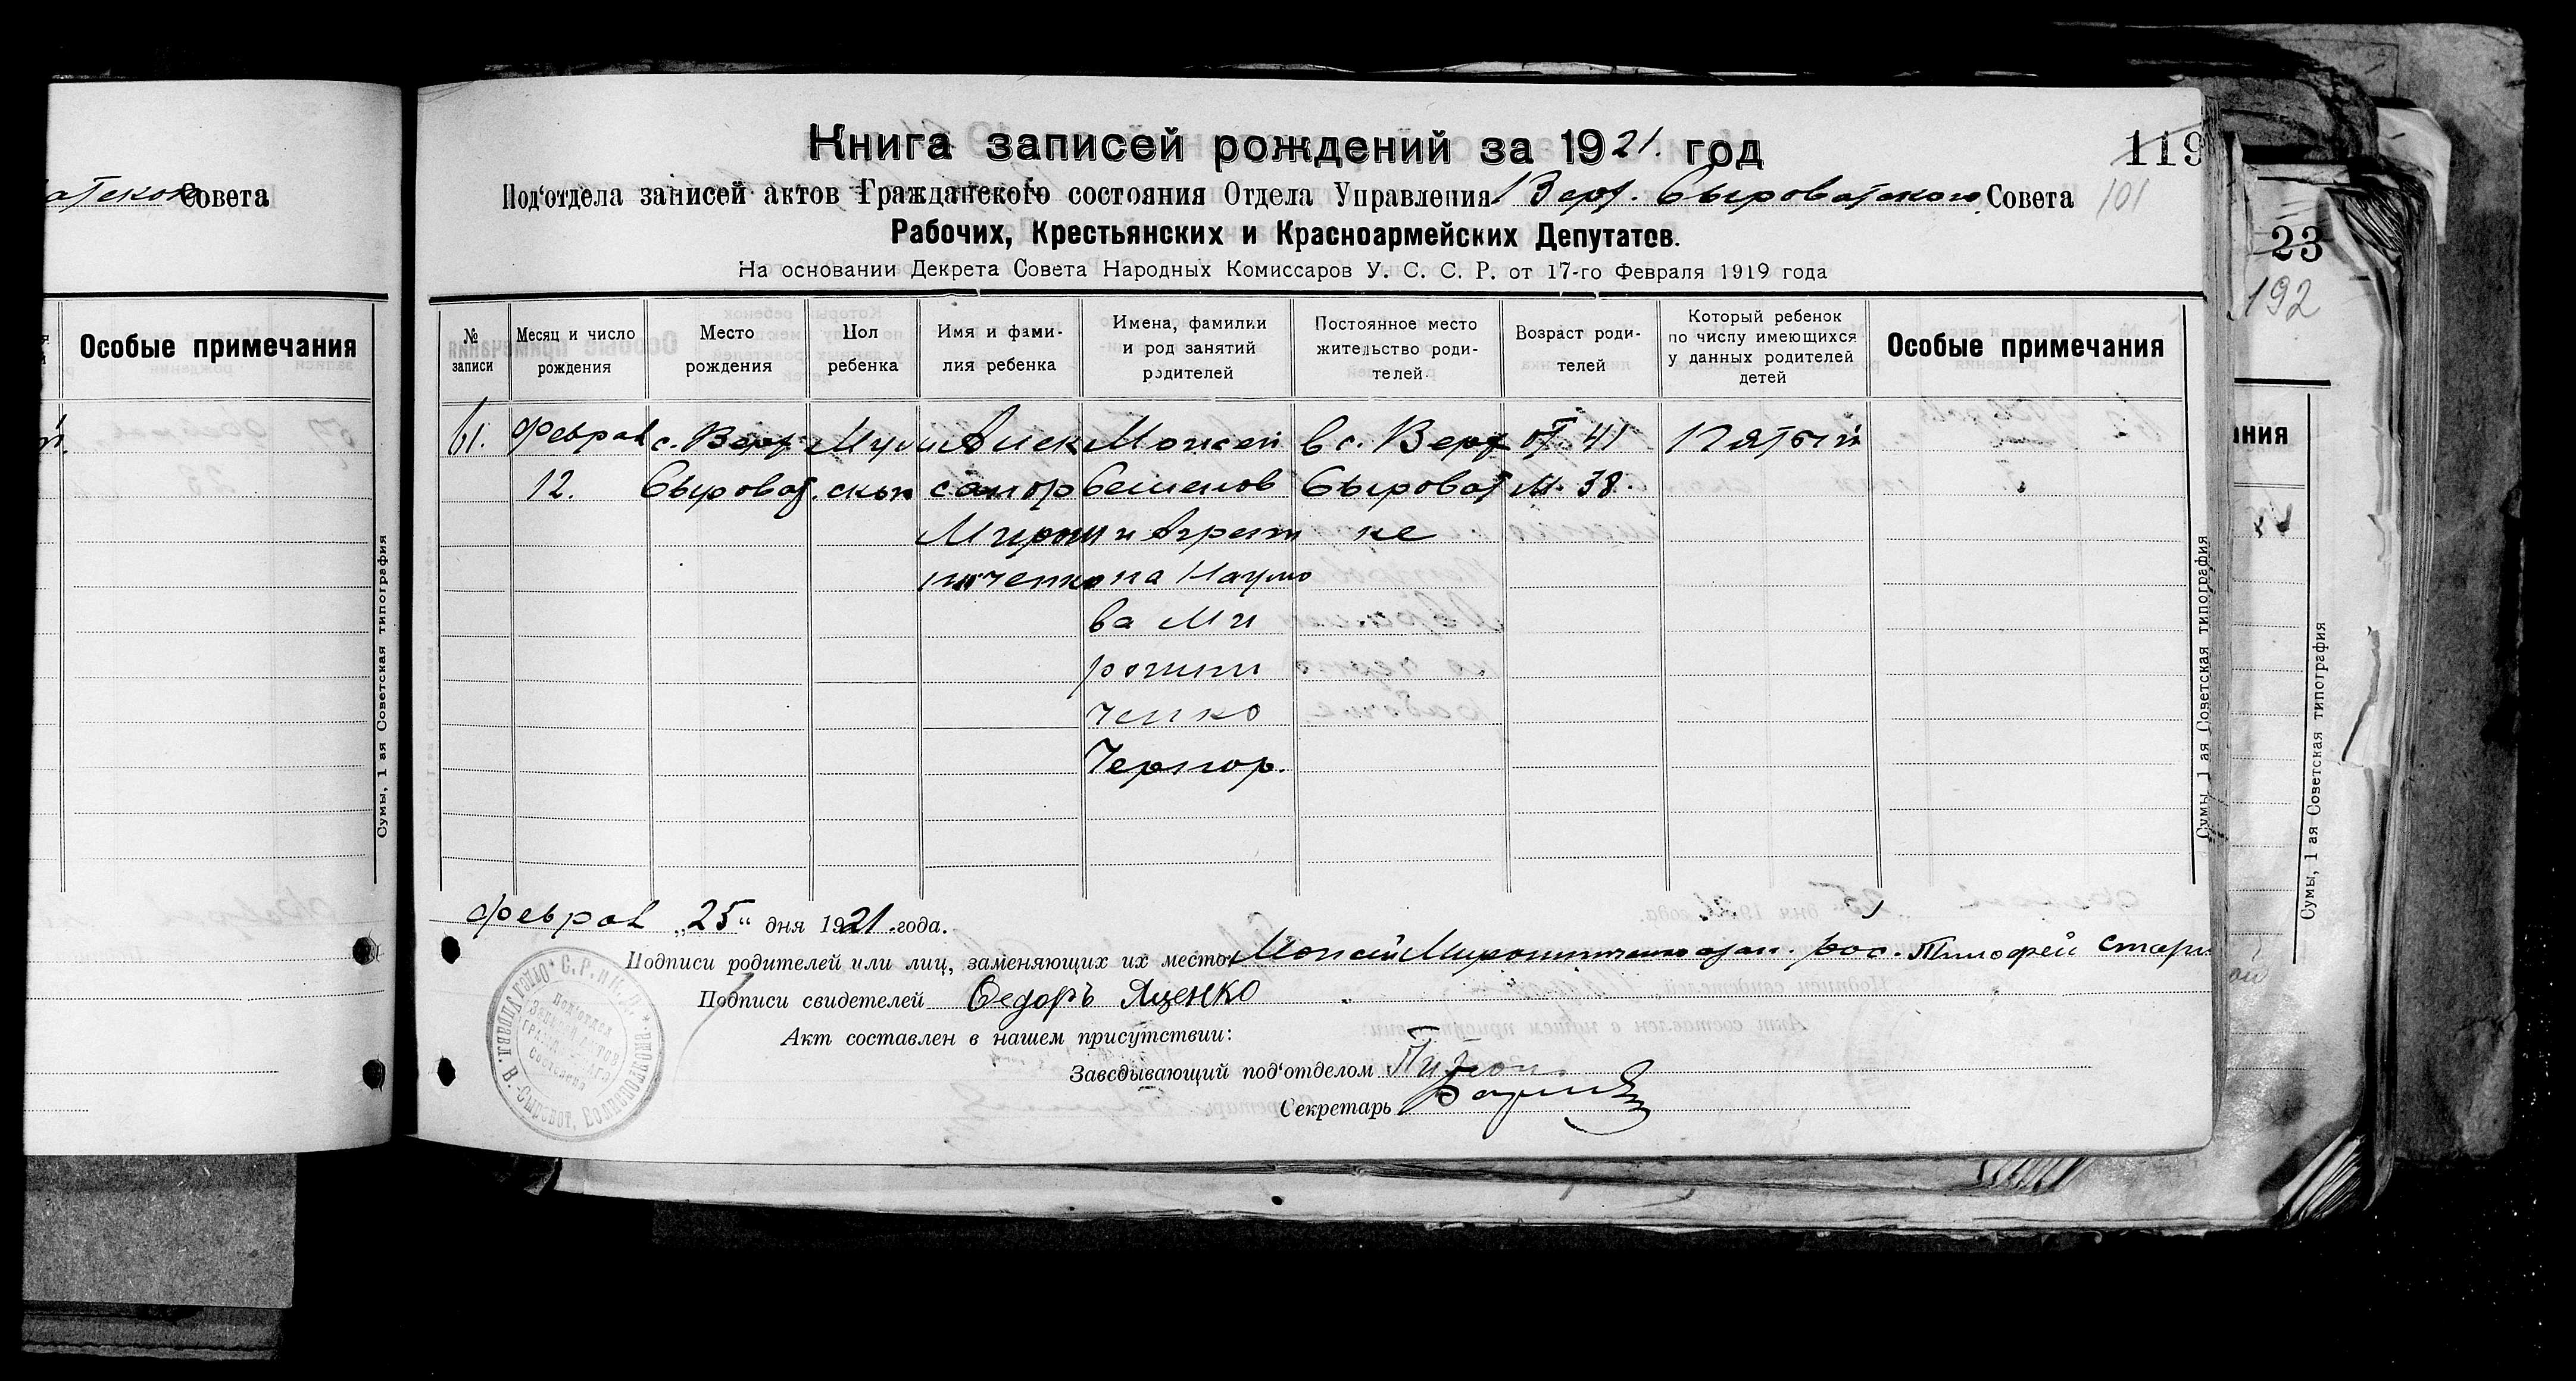 Совета
Особые примечания
Сумы, 1 ая Советская типография
Книга записей рождений за 1921. год
119
Под'отдела записей актов Гражданского состояния Отдела Управления Верх. Сыроватского Совета
101
Рабочих, Крестьянских и Красноармейских Депутатов.
На основании Декрета Совета Народных Комиссаров У. С. С. Р. от 17-го Февраля 1919 года
№ записи
Месяц и число рождения
Место рождения
Пол ребенка
Имя и фами-
лия ребенка
Имена, фамилии
и род занятий
родителей
Постоянное место
жительство роди-
телей.
Возраст роди-
телей
Который ребенок
по числу имеющихся
у данных родителей
детей
Особые примечания
61.
Феврал
12.
с. Верх
Сыроват.
Муж
ской
Алек
сандр
Мирош
ниченко
Моисей
Семенов
и Агрепи
на Наумо
ва Ми
рошни
ченко
Чернор.
в с. Верх
Сыроват
ке
от. 41
м. 38.
Пятый
Сумы, 1 ая Советская типография
Феврал „25“ дня 1921 .года.
Подписи родителей или лиц, заменяющих их место Моисей Мирошниченко Тимофей
Подписи свидетелей Федоръ Яценко
Акт составлен в нашем присутствии:
Заведывающий под'отделом
Секретарь
23
192
ания
Сумы, 1 ая Советская типография